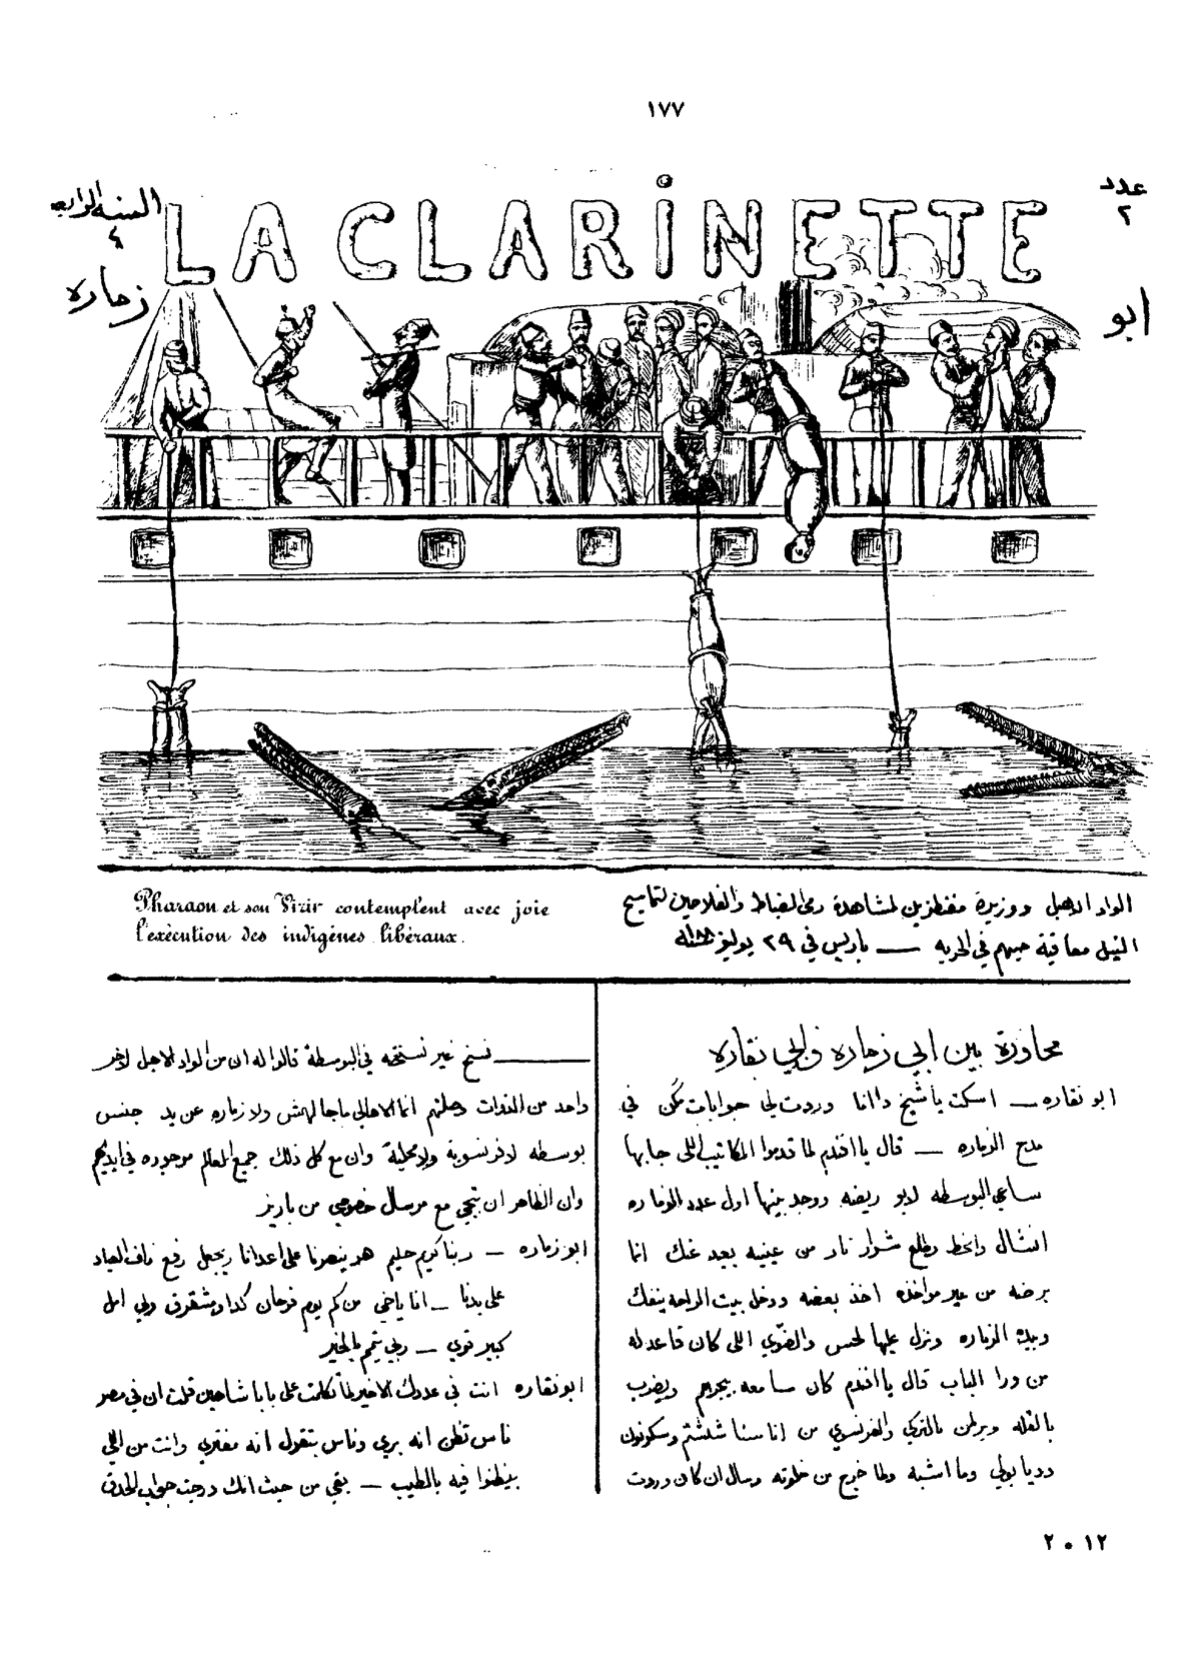 ١٧٧
عدد
٢
LA CLARINETTE
السنه الرابعه
٤
ابو
زماره
الواد الاهبل ووزيره منظرين لمشاهدة رمى الضباط والفلاحين لتماسيح
النيل معاقبة حبهم في الحريه — باريس في ٢٩ يوليو سنة
Pharaon et son Vizir contemplent avec joie
l'exécution des indigènes libéraux.
محاورة بين ابي زماره وابي نقاره
ابو نقاره — اسكت يا شيخ دا انا وردت لي جوابات في
مدح الزماره — قال يا افندم لما قدموا المكاتيب اللى جابها
ساعي البوسطه لابو ريضه ووجد بينها اول عدد الزماره
انشال وانحط وطلع شرار نار من عينيه بعيد عنك انما
برضه من غير مواخذه اخذ بعضه ودخل بيت الراحه
وبيده الزماره ونزل عليها لحس اللى كان قاعد له
من ورا الباب قال يا افندم كان سامعه ويضرب
بالقله ويرطن بالتركي والفرنسوي من
وما اشبه ولما خرج من خلوته وسال ان كان وردت
نسخ غير نسخته في البوسطة قالوا له ان من الواد الاهبل لاخر
واحد من الذوات وصلتهم انما الاهالي ما جالهمش ولا زماره عن يد جنس
بوسطه لا فرنسوية ولا محلية وان مع كل ذلك جميع موجوده في ايديهم
وان الظاهر ان تجي مع مرسال خصوصي من باريز
ابو زماره — ربنا كريم حليم هو ينصرنا على اعدانا ويجعل رفع العباد
على يدنا — انا ياخي من كم يوم فرحان كدا ولي امل
كبير قوي — ربي يتمم بالخير
ابو نقاره انت في عددك الاخير لما تكلمت على بابا شاهين قلت ان في مصر
ناس تظن انه بري وناس بتقول انه مفتري وانت من اللي
بيظنوا فيه بالطيب — بقي من حيث انك درجت
٢ ٠ ١٢